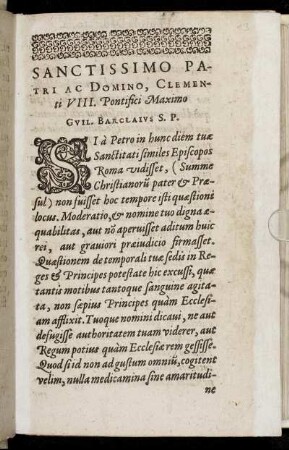 SANCTISSIMO PA-
TRI AC DOMINO, CLEMEN-
ti VIII. Pontifici Maximo
GVIL. BARCLAIVS S. P.
SI à Petro in hunc diem tuæ
Sanctitati similes Episcopos
Roma vidisset, (Summe
Christianorū pater & Præ-
sul) non fuisset hoc tempore isti quæstioni
locus. Moderatio, & nomine tuo digna æ-
quabilitas, aut nō aperuisset aditum huic
rei, aut grauiori præiudicio firmasset.
Quæstionem de temporali tuæ sedis in Re-
ges & Principes potestate hic excussi, quæ
tantis motibus tantoque sanguine agita-
ta, non sæpius Principes quàm Ecclesi-
am afflixit. Tuoque nomini dicaui, ne aut
defugisse authoritatem tuam viderer, aut
Regum potius quàm Ecclesiæ rem gessisse.
Quod si id non ad gustum omniū, cogitent
velim, nulla medicamina sine amaritudi-
ne